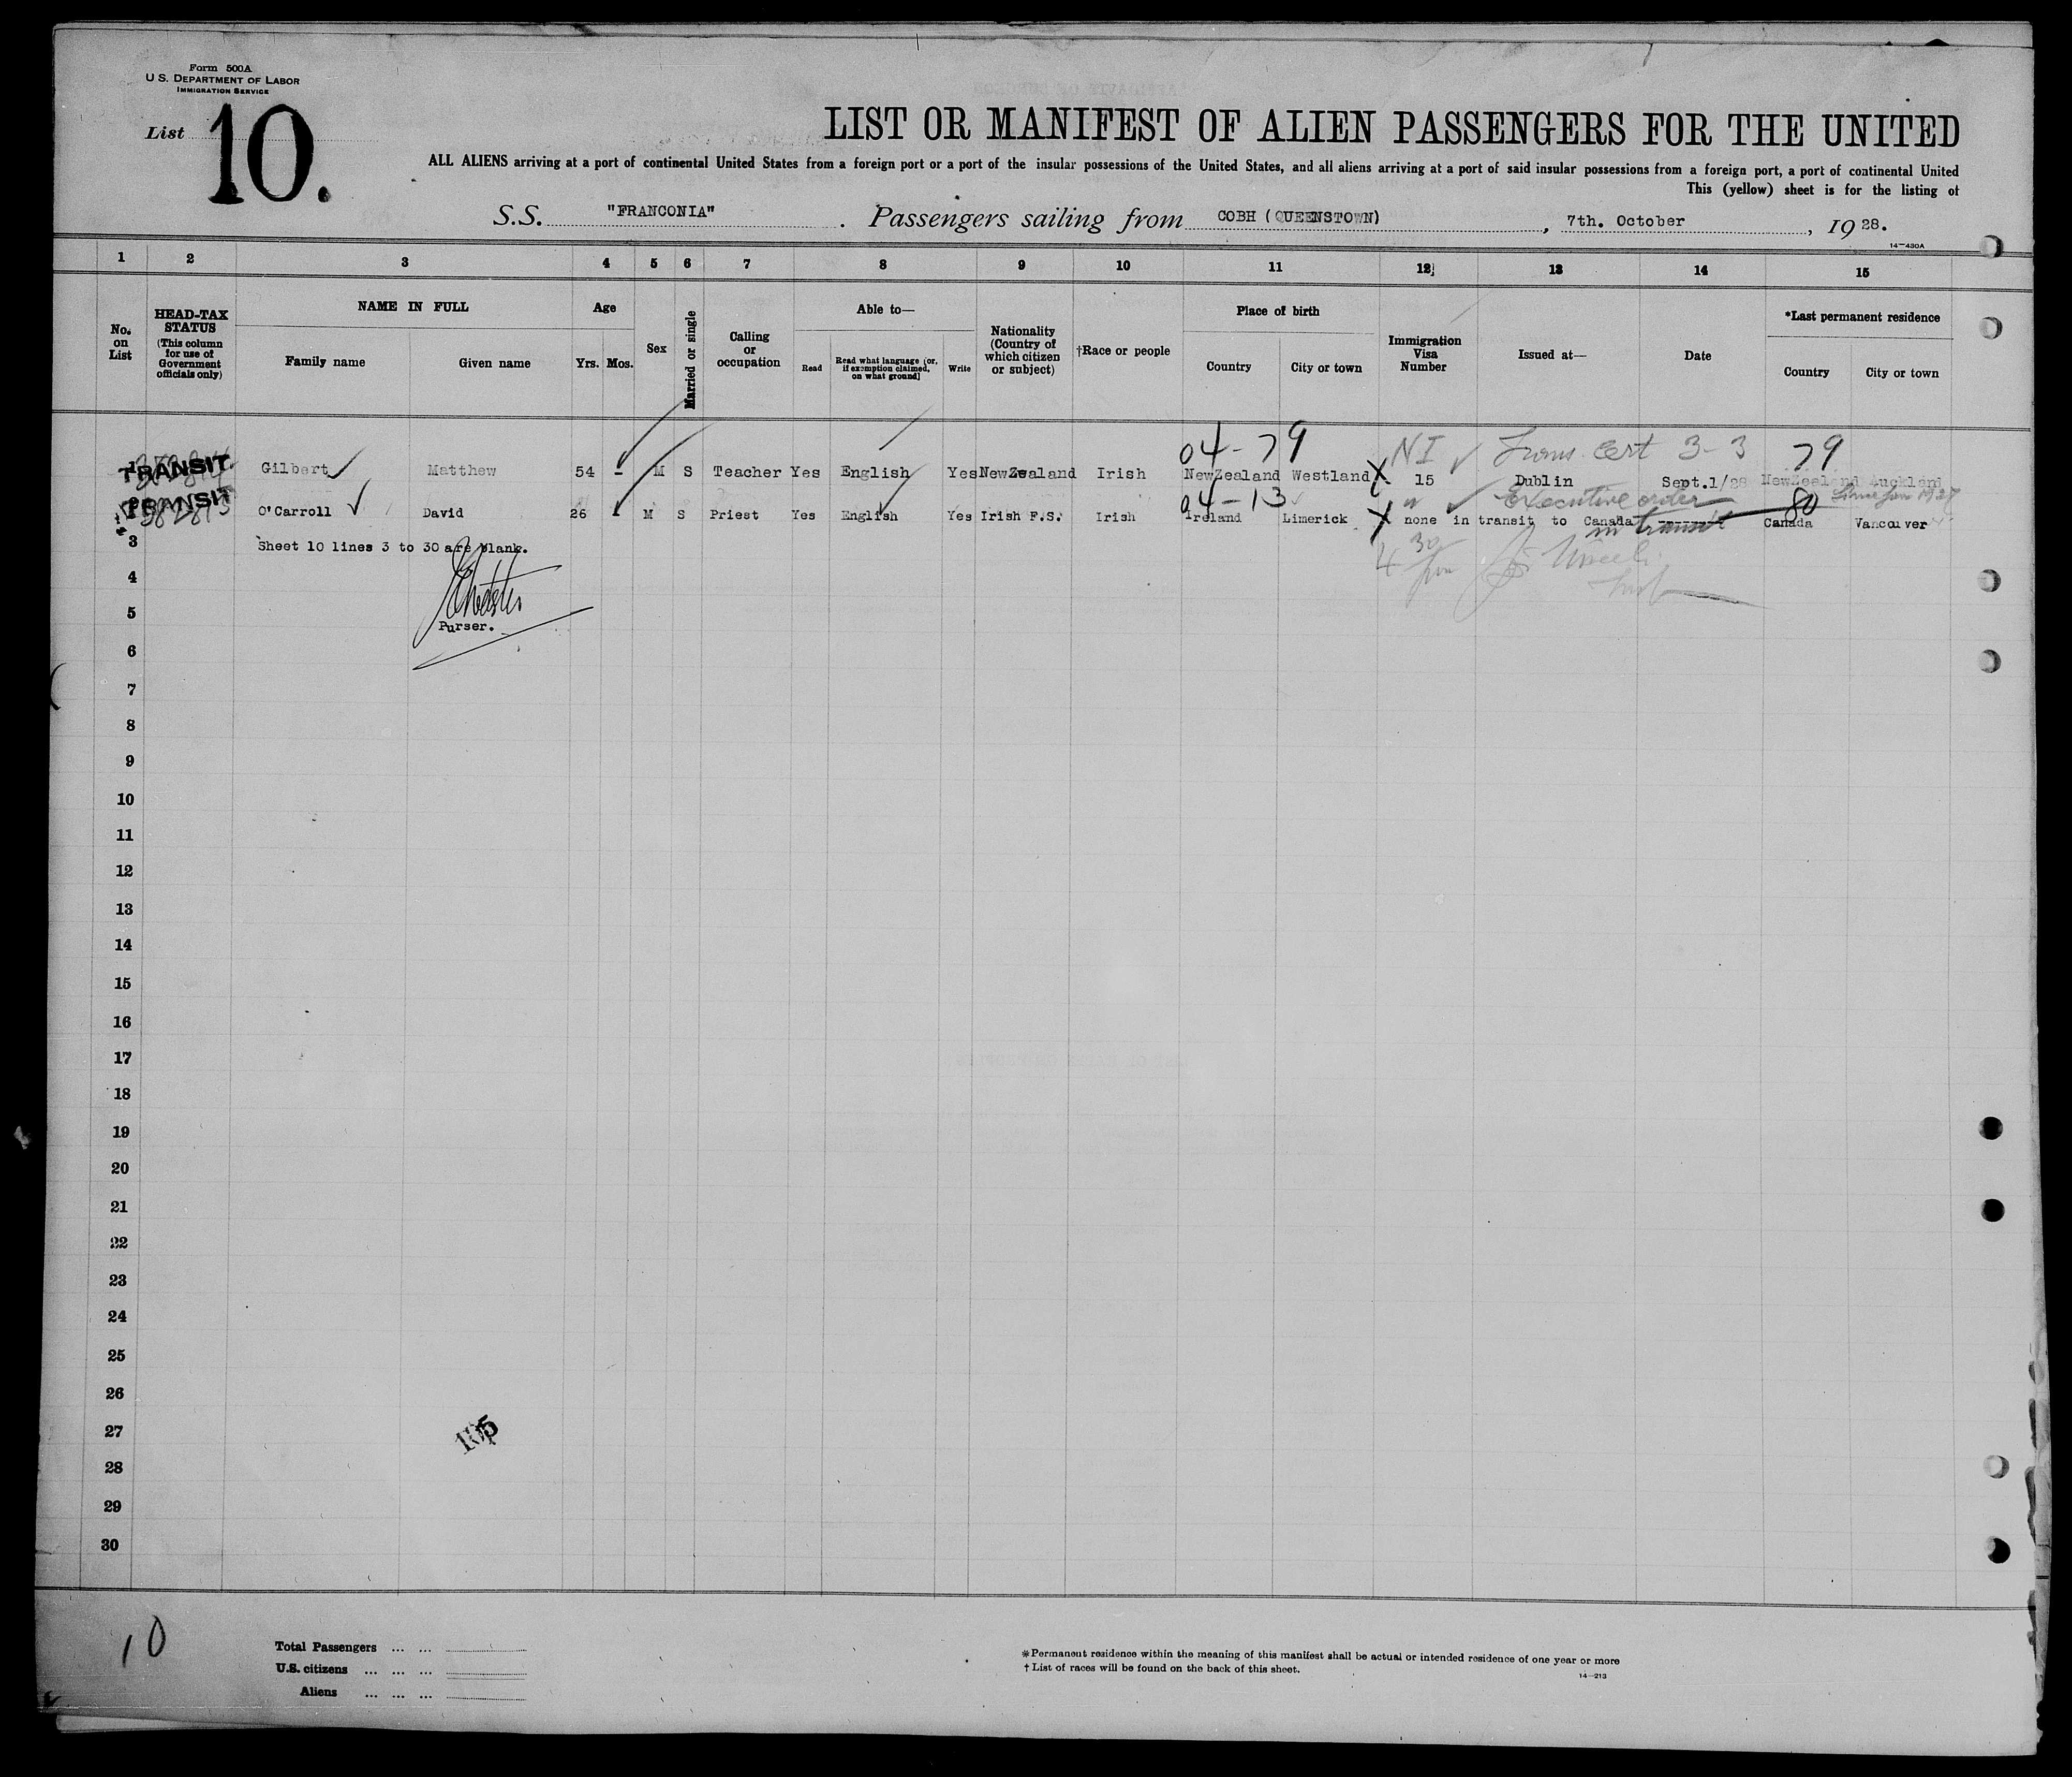 Form 500A
U.S. DEPARTMENT OF LABOR
IMMIGRATION SERVICE
List 10.
LIST OR MANIFEST OF ALIEN PASSENGERS FOR THE UNITED
ALL ALIENS arriving at a port of continental United States from a foreign port or a port of the insular possessions of the United States, and all aliens arriving at a port of said insular possessions from a foreign port, a port of continental United
This (yellow) sheet is for the listing of
S.S. "FRANCONIA" . Passengers sailing from COBH (QUEENSTOWN) , 7th. October , 19 28.
14—430A
1 2 3 4 5 6 7 8 9 10 11 12 13 14 15
No. on List
HEAD-TAX STATUS (This column for use of Government officials only)
NAME IN FULL
Family name Given name
Age
Yrs. Mos.
Sex
Married or single
Calling or occupation
Able to—
Read Read what language (or, if exemption claimed, on what ground) Write
Nationality (Country of which citizen or subject)
†Race or people
Place of birth
Country City or town
Immigration Visa Number
Issued at—
Date
*Last permanent residence
Country City or town
04-79 NI Trans. Cert 3-3 79
TRANSIT Gilbert Matthew 54 - M S Teacher Yes English Yes NewZealand Irish NewZealand Westland X 15 Dublin Sept.1/28 NewZealand Auckland
04-13 Executive order 80
TRANSIT O'Carroll David 26 - M S Priest Yes English Yes Irish F.S. Irish Ireland Limerick X none in transit to Canada in transit Canada Vancouver
3 Sheet 10 lines 3 to 30 are blank.
4
5
Purser.
6
7
8
9
10
11
12
13
14
15
16
17
18
19
20
21
22
23
24
25
26
27
28
29
30
10
Total Passengers ... ...
U.S. citizens ... ... ...
Aliens ... ... ...
*Permanent residence within the meaning of this manifest shall be actual or intended residence of one year or more
† List of races will be found on the back of this sheet.
14—213